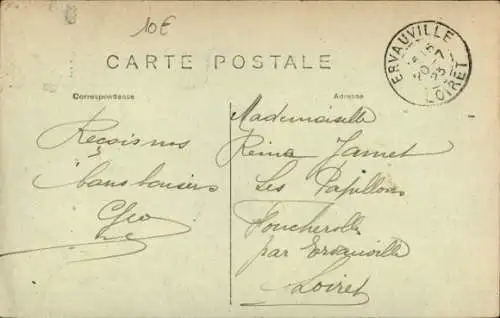 10€
CARTE POSTALE
Correspondance
Adresse
ERVAUVILLE
20-7
LOIRET
Reçois nos
bons baisers
Geo
Mademoiselle
Reina Jamet
Les Papillons
Foucherolle
par Ervauville
Loiret